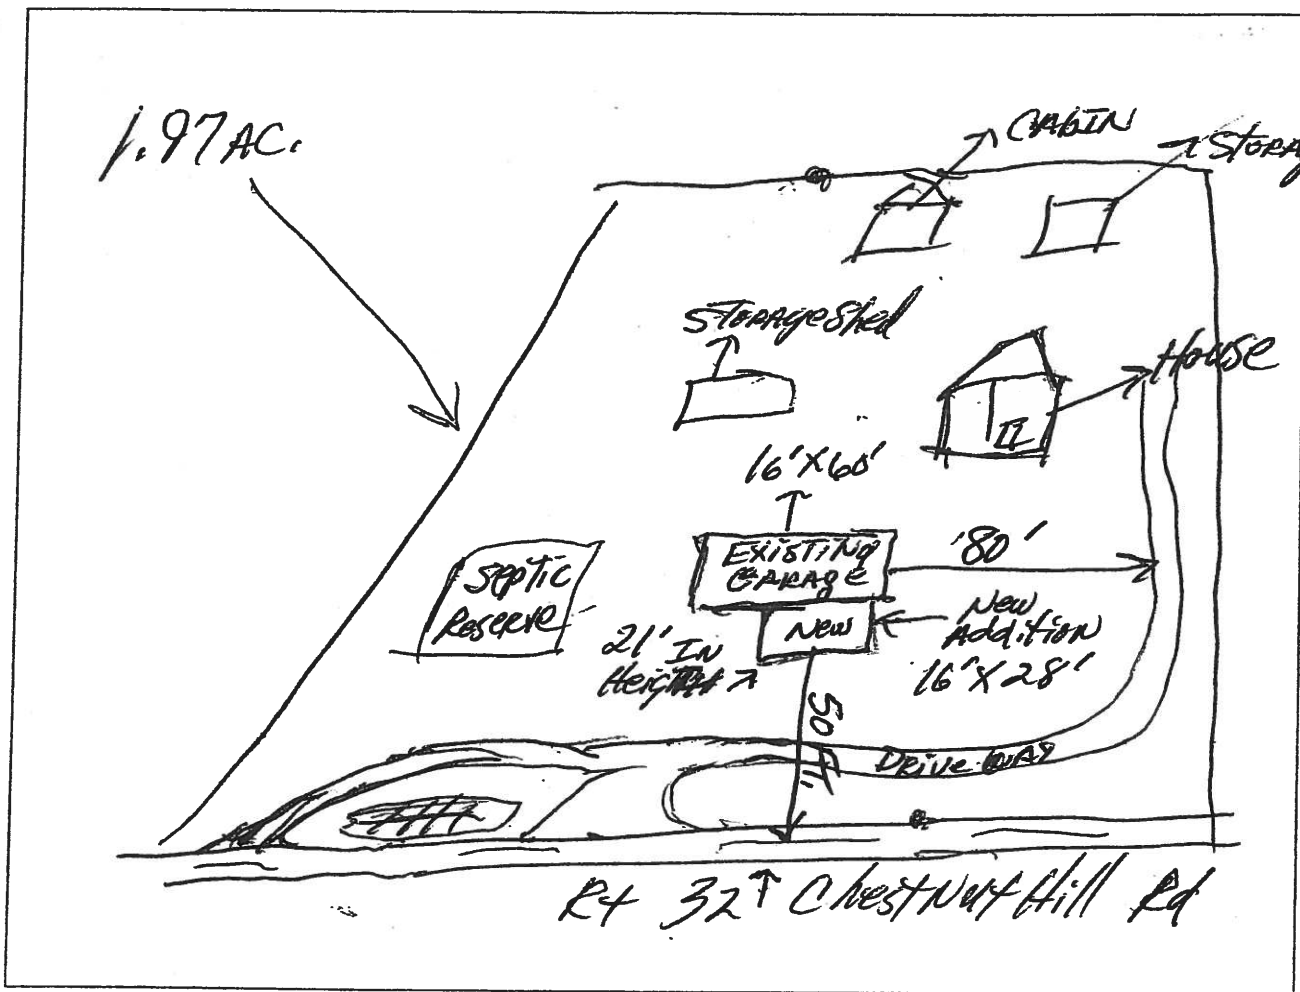 1.97 AC.
CABIN
STORAG
STORAGE Shed
House
16' X 60'
EXISTING
GARAGE
80'
Septic
Reserve
New
New
Addition
16' X 28'
21' IN
Height
50 Ft.
Drive WAY
Rt 32 Chestnut Hill Rd